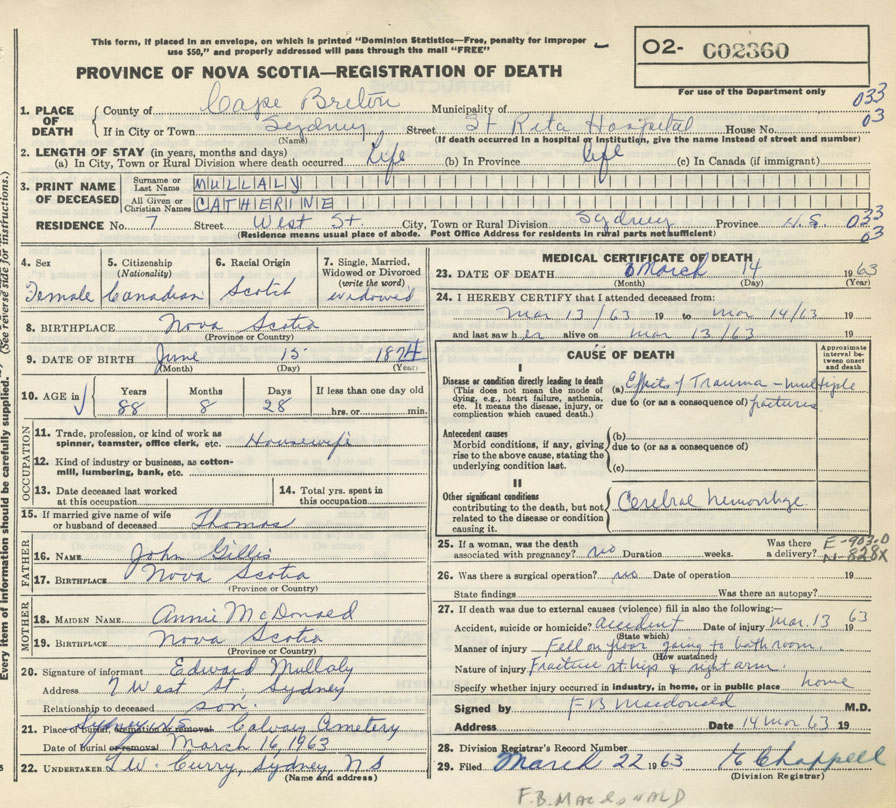 This form, if placed in an envelope, on which is printed "Dominion Statistics—Free, penalty for improper
use $50," and properly addressed will pass through the mail "FREE"
O2- C02360
PROVINCE OF NOVA SCOTIA—REGISTRATION OF DEATH
For use of the Department only
033
03
1. PLACE OF DEATH { County of Cape Breton Municipality of
If in City or Town Sydney Street St Rita Hospital House No.
(Name) (If death occurred in a hospital or institution, give the name instead of street and number)
2. LENGTH OF STAY (in years, months and days)
(a) In City, Town or Rural Division where death occurred. Life (b) In Province life (c) In Canada (if immigrant)
3. PRINT NAME OF DECEASED { Surname or Last Name MULLALY
All Given or Christian Names CATHERINE
RESIDENCE No. 7 Street West St. City, Town or Rural Division Sydney Province N.S 033
03
(Residence means usual place of abode. Post Office Address for residents in rural parts not sufficient)
4. Sex Female
5. Citizenship (Nationality) Canadian
6. Racial Origin Scotch
7. Single, Married, Widowed or Divorced (write the word) widowed
8. BIRTHPLACE Nova Scotia
(Province or Country)
9. DATE OF BIRTH June 15 1874
(Month) (Day) (Year)
10. AGE in Years Months Days If less than one day old
88 8 28 hrs. or min.
OCCUPATION
11. Trade, profession, or kind of work as spinner, teamster, office clerk, etc. Housewife
12. Kind of industry or business, as cotton-mill, lumbering, bank, etc.
13. Date deceased last worked at this occupation
14. Total yrs. spent in this occupation
15. If married give name of wife or husband of deceased Thomas
FATHER
16. NAME John Gillis
17. BIRTHPLACE Nova Scotia
(Province or Country)
MOTHER
18. MAIDEN NAME Annie McDonald
19. BIRTHPLACE Nova Scotia
(Province or Country)
20. Signature of informant Edward Mullaly
Address 7 West St, Sydney
Relationship to deceased son.
21. Place of burial, cremation or removal Sydney N S Calvary Cemetery
Date of burial or removal March 16, 1963
22. UNDERTAKER T.W. Curry, Sydney, N S
(Name and address)
MEDICAL CERTIFICATE OF DEATH
23. DATE OF DEATH March 14 1963
(Month) (Day) (Year)
24. I HEREBY CERTIFY that I attended deceased from:
Mar 13/63 19 to Mar 14/63 19
and last saw h er alive on mar 13/63 19
CAUSE OF DEATH
Approximate interval between onset and death
I
Disease or condition directly leading to death
(This does not mean the mode of dying, e.g., heart failure, asthenia, etc. It means the disease, injury, or complication which caused death.)
(a) Effects of Trauma - multiple
due to (or as a consequence of) fractures.
Antecedent causes
Morbid conditions, if any, giving rise to the above cause, stating the underlying condition last.
(b)
due to (or as a consequence of)
(c)
II
Other significant conditions
contributing to the death, but not related to the disease or condition causing it.
Cerebral hemorrhage
25. If a woman, was the death associated with pregnancy? no Duration weeks. Was there a delivery?
E-903.0
N-828X
26. Was there a surgical operation? no Date of operation 19
State findings Was there an autopsy?
27. If death was due to external causes (violence) fill in also the following:—
Accident, suicide or homicide? accident Date of injury Mar. 13 1963
(State which)
Manner of injury Fell on floor going to bathroom.
(How sustained)
Nature of injury Fracture rt hip & right arm.
Specify whether injury occurred in industry, in home, or in public place home
Signed by F B Macdonald M.D.
Address Date 14 Mar 63 19
28. Division Registrar's Record Number
29. Filed March 22 1963 Chappell
(Division Registrar)
F.B. MACDONALD
Every item of information should be carefully supplied. (See reverse side for instructions.)